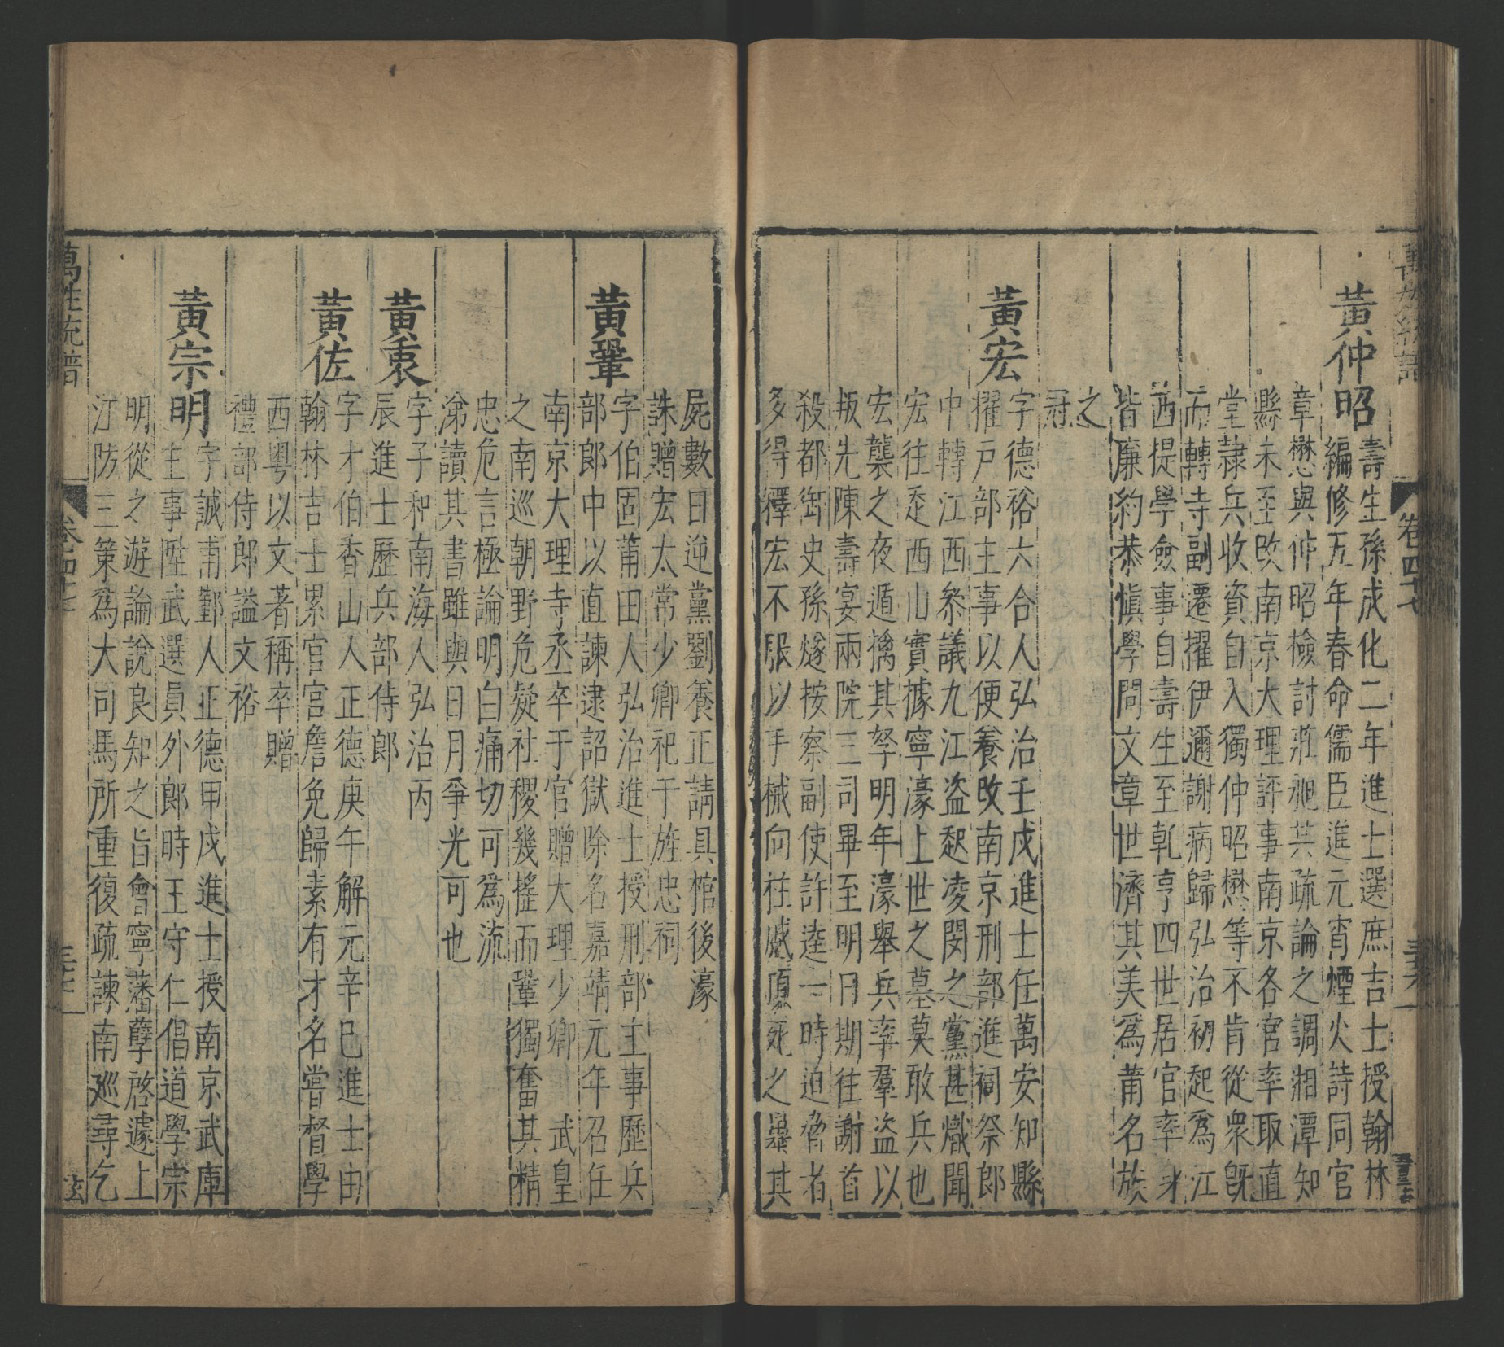 黃仲昭壽生孫成化二年進士選庶吉士授翰林
編修五年春命儒臣進元宵煙火詩同官
章懋與仲昭檢討莊昶共疏論之謫湘潭知
縣未至改南京大理評事南京各官率取直
堂隷兵收資自入獨仲昭懋等不肯從衆旣
而轉寺副遷擢伊邇謝病歸弘治初起爲江
西提學僉事自壽生至乾亨四世居官率身
皆廉約恭愼學問文章世濟其美爲莆名族
之
冠
黃宏字德裕六合人弘治壬戌進士任萬安知縣
擢戶部主事以便養改南京刑部進祠祭郎
中轉江西叅議九江盜起凌閔之黨甚熾聞
宏往走西山實據寧濠上世之墓莫敢兵也
宏襲之夜遁擒其孥明年濠舉兵率羣盜以
叛先陳壽宴兩院三司畢至明日期往謝首
殺都御史孫燧按察副使許逵一時迫脅者
多得釋宏不服以手械向柱慼頋死之暴其
屍數日逆黨劉養正請具棺後濠
誅贈宏太常少卿祀于旌忠祠
黃鞏字伯固莆田人弘治進士授刑部主事歷兵
部郞中以直諫逮詔獄除名嘉靖元年召任
南京大理寺丞卒于官贈大理少卿 武皇
之南巡朝野危疑社稷幾搖而鞏獨奮其精
忠危言極論明白痛切可爲流
涕讀其書雖與日月爭光可也
黃衷字子和南海人弘治丙
辰進士歷兵部侍郎
黃佐字才伯香山人正德庚午解元辛巳進士由
翰林吉士累官宮詹免歸素有才名嘗督學
西粤以文著稱卒贈
禮部侍郎謚文裕
黃宗明字誠甫鄞人正德甲戌進士授南京武庫
主事陞武選員外郎時王守仁倡道學宗
明從之遊論說良知之旨會寧藩孽啓遽上
江防三策爲大司馬所重復疏諫南巡尋乞
萬姓統譜
卷四十七